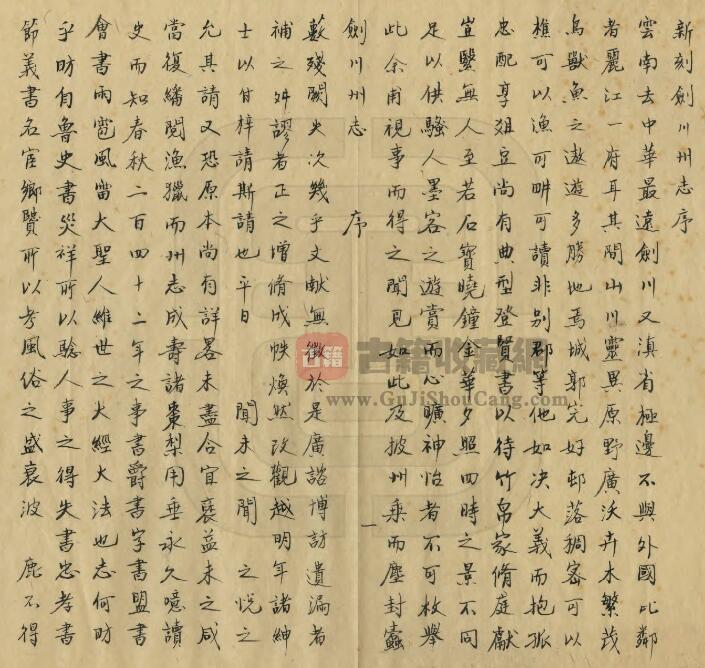 新刻劍川州志序
雲南去中華最遠劍川又滇省極邊不與外國比鄰
者麗江一府耳其間山川靈異原野廣沃卉木繁茂
鳥獸魚之遨遊多勝地焉城郭完好邨落稠密可以
樵可以漁可畊可讀非別郡等他如決大義而抱孤
忠配享俎豆尚有典型登賢書以待竹帛家脩庭獻
豈鑒無人至若石寶曉鐘金華夕照四時之景不同
足以供騷人墨客之遊賞而心曠神怡者不可枚舉
此余甫視事而得之聞見如此及披州乘而塵封蠹
劍川州志 序 一
藪殘闕失次幾乎文献無徵於是廣諮博訪遺漏者
補之舛謬者正之增脩成帙煥然改觀越明年諸紳
士以付梓請斯請也平日 聞未之聞 之悅之
允其請又恐原本尚有詳畧未盡合宜裒益未之咸
當復繙閱漁獵而州志成壽諸棗梨用垂永久噫讀
史而知春秋二百四十二年之事書爵書字書盟書
會書雨雹風雷大聖人維世之大經大法也志何昉
乎昉自魯史書災祥所以驗人事之得失書忠孝書
節義書名宦鄉賢所以考風俗之盛衰波 鹿不得
古籍
古籍收藏網
www.GuJiShouCang.com